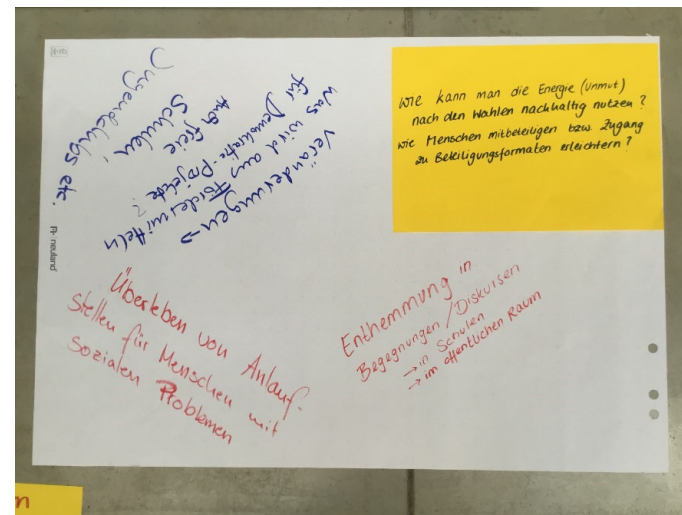 wie kann man die Energie (Unmut)
nach den Wahlen nachhaltig nutzen?
wie Menschen mitbeteiligen bzw. Zugang
zu Beteiligungsformaten erleichtern?
Veränderungen →
Was wird aus Fördermitteln
für Demokratie-Projekte?
auch freie
Schulen,
Jugendclubs etc.
neuland
Überleben von Anlauf-
stellen für Menschen mit
sozialen Problemen
Enthemmung in
Begegnungen / Diskursen
→ in Schulen
→ im öffentlichen Raum
n